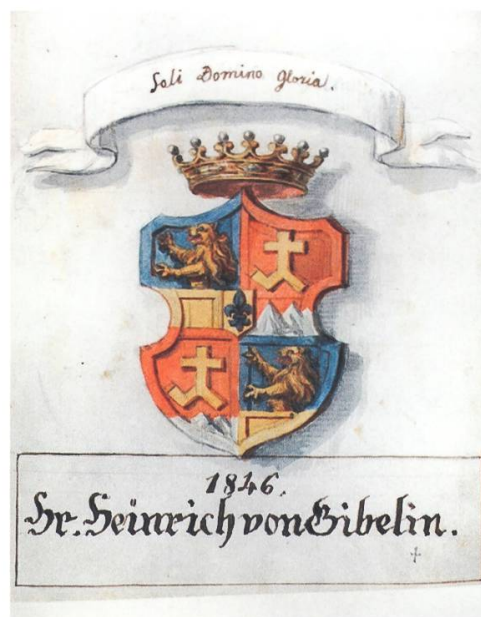 Soli Domino Gloria.
1846.
Hr. Heinrich von Gibelin.